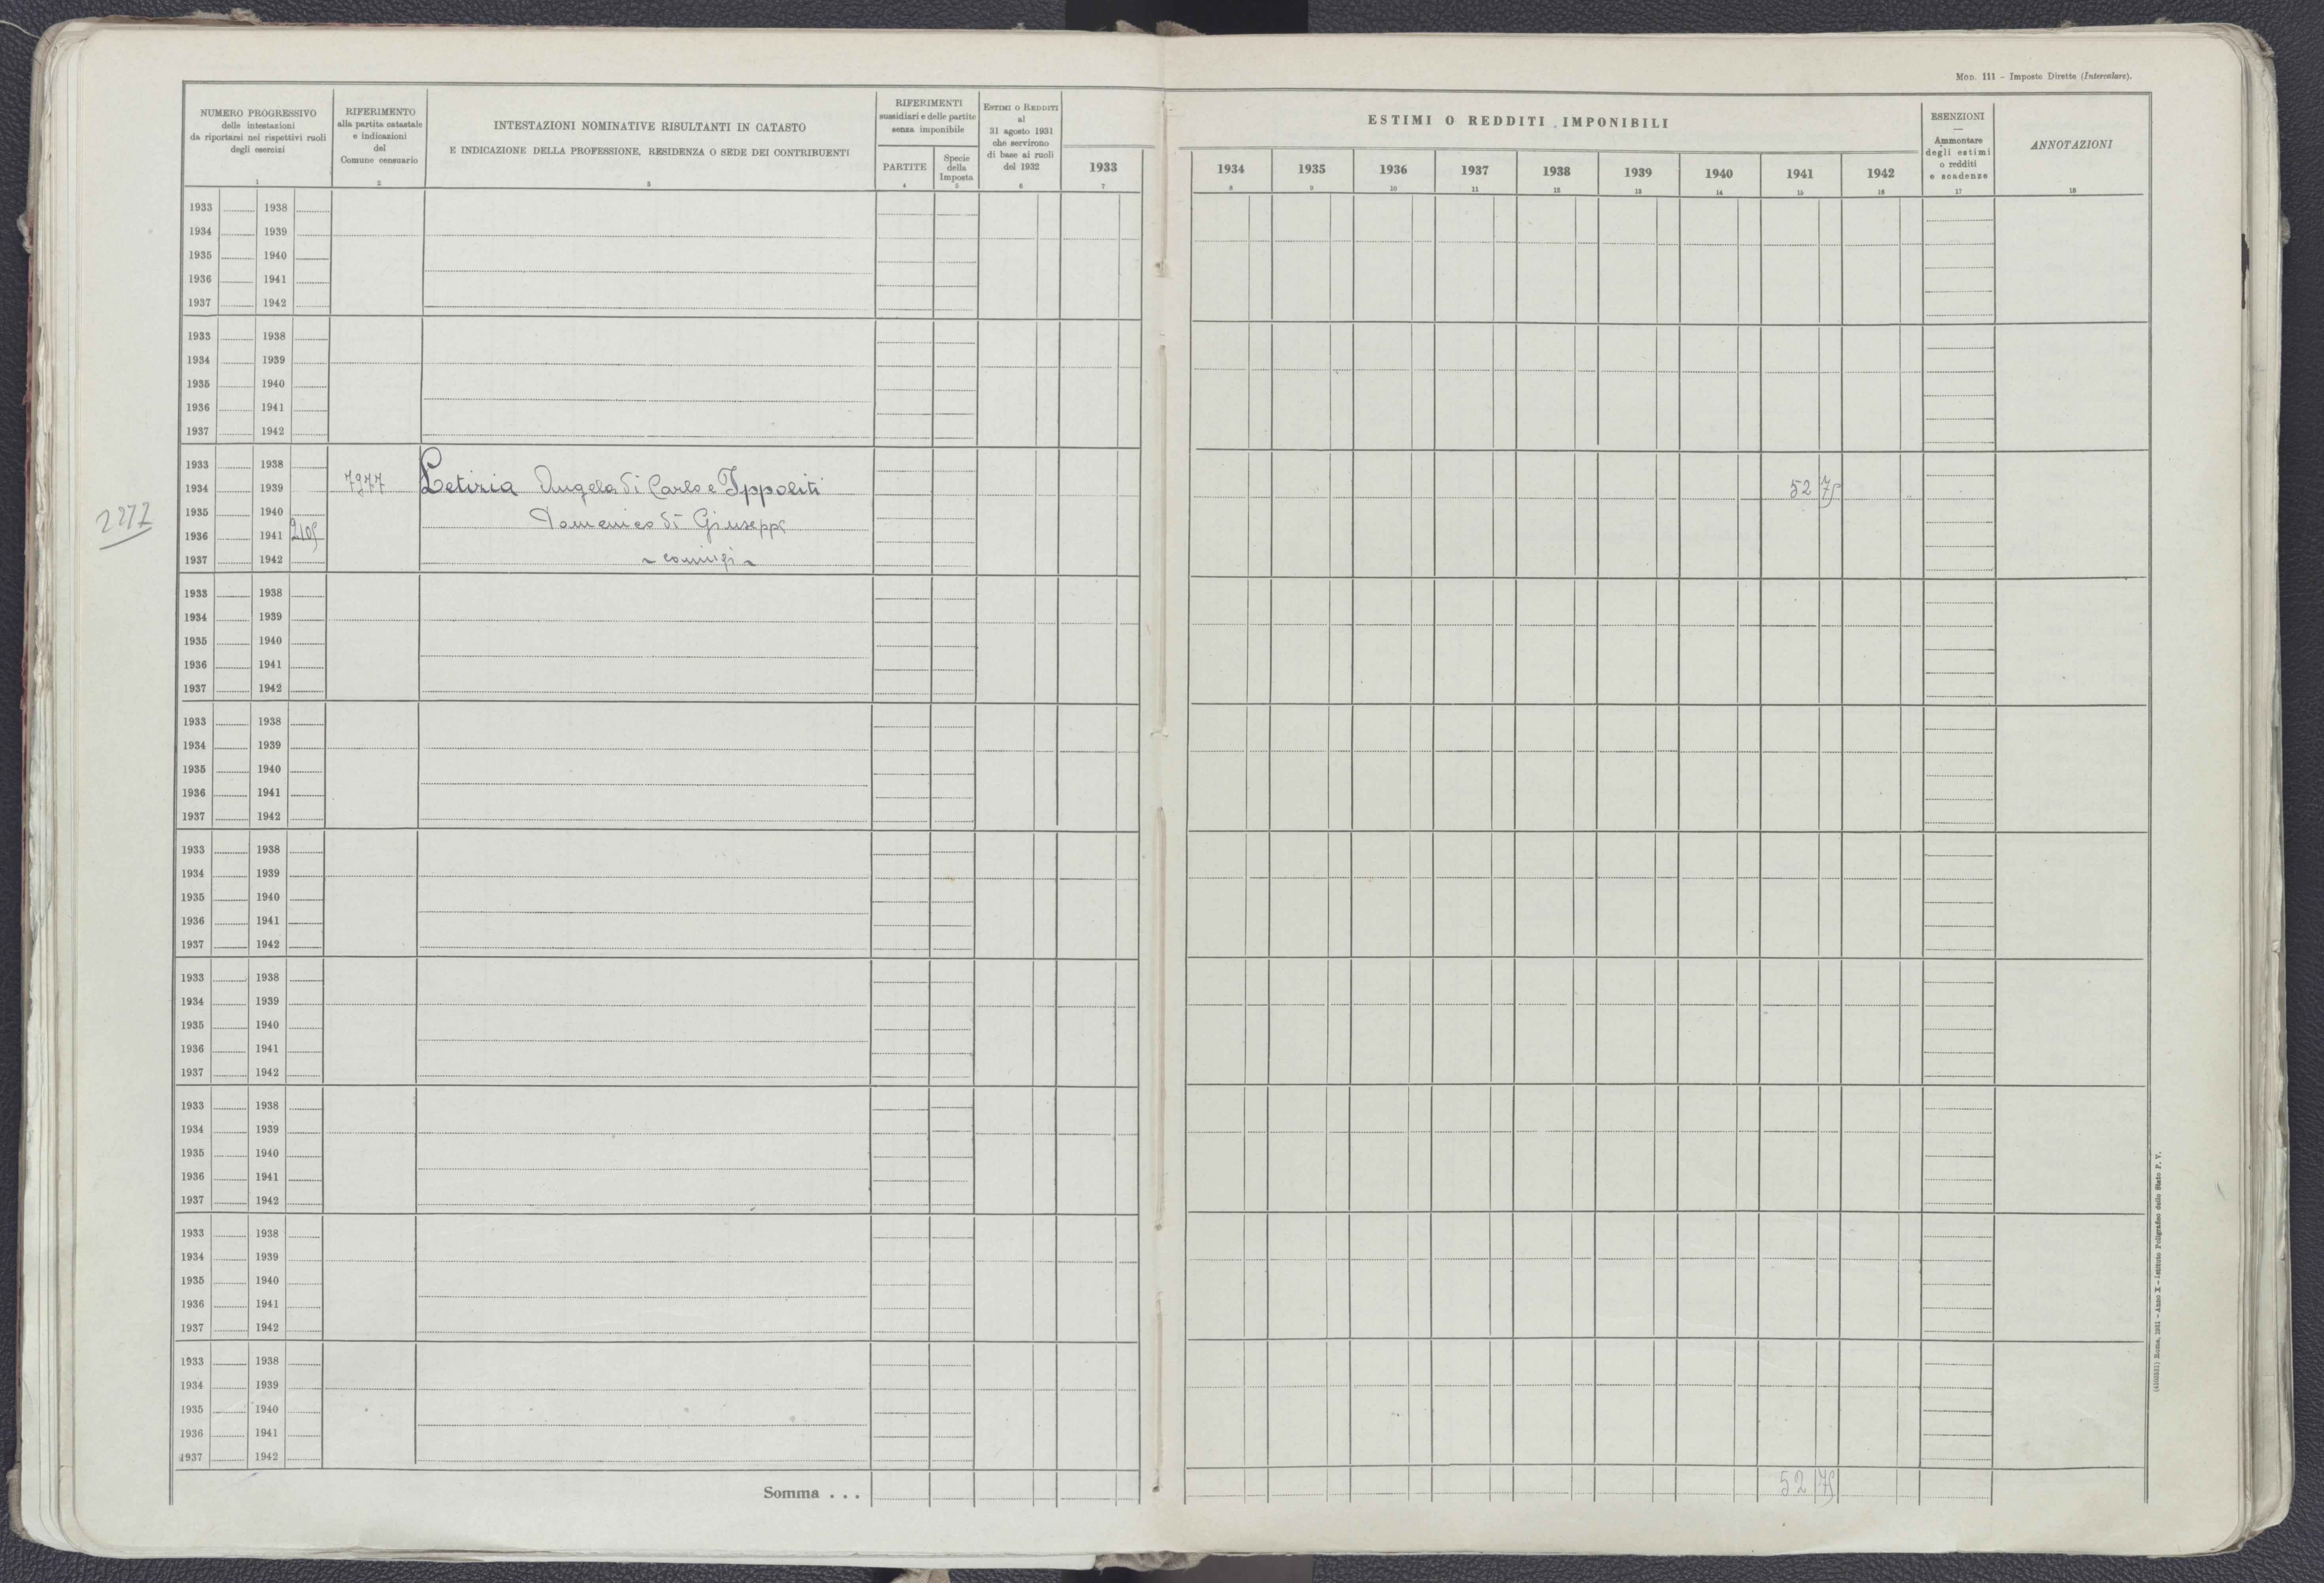 MOD. 111 – Imposte Dirette (Intercalare).
NUMERO PROGRESSIVO
delle intestazioni
da riportarsi nei rispettivi ruoli
degli esercizi
1
RIFERIMENTO
alla partita catastale
e indicazioni
del
Comune censuario
2
INTESTAZIONI NOMINATIVE RISULTANTI IN CATASTO
E INDICAZIONE DELLA PROFESSIONE, RESIDENZA O SEDE DEI CONTRIBUENTI
3
RIFERIMENTI
sussidiari e delle partite
senza imponibile
PARTITE
4
Specie
della
Imposta
5
ESTIMI O REDDITI
al
31 agosto 1931
che servirono
di base ai ruoli
del 1932
6
1933
7
ESTIMI O REDDITI IMPONIBILI
1934 1935 1936 1937 1938 1939 1940 1941 1942
8 9 10 11 12 13 14 15 16
ESENZIONI
—
Ammontare
degli estimi
o redditi
e scadenze
17
ANNOTAZIONI
18
1933 1938
1934 1939
1935 1940
1936 1941
1937 1942
1933 1938
1934 1939
1935 1940
1936 1941
1937 1942
1933 1938
1934 1939 7977 Letizia Angela di Carlo e Ippoliti 52 75
1935 1940 Domenico di Giuseppe
1936 1941 2105
1937 1942 ~ coniugi ~
1933 1938
1934 1939
1935 1940
1936 1941
1937 1942
1933 1938
1934 1939
1935 1940
1936 1941
1937 1942
1933 1938
1934 1939
1935 1940
1936 1941
1937 1942
1933 1938
1934 1939
1935 1940
1936 1941
1937 1942
1933 1938
1934 1939
1935 1940
1936 1941
1937 1942
1933 1938
1934 1939
1935 1940
1936 1941
1937 1942
1933 1938
1934 1939
1935 1940
1936 1941
1937 1942
Somma . . . 52 75
(4100351) Roma, 1931 – Anno X – Istituto Poligrafico dello Stato P. V.